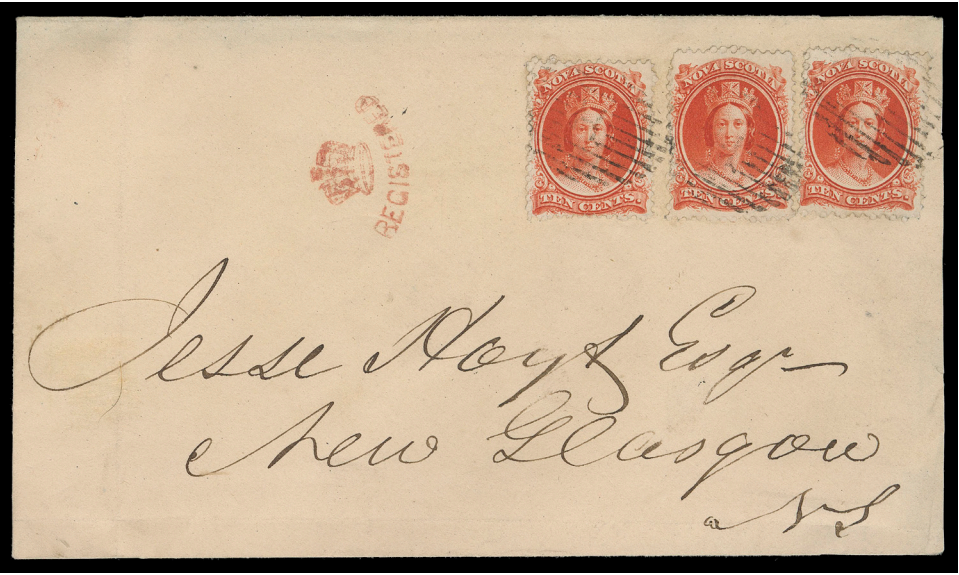 NOVA SCOTIA
TEN CENTS.
NOVA SCOTIA
TEN CENTS.
NOVA SCOTIA
TEN CENTS.
REGISTERED
Jesse Hoyt Esqr
New Glasgow
NS